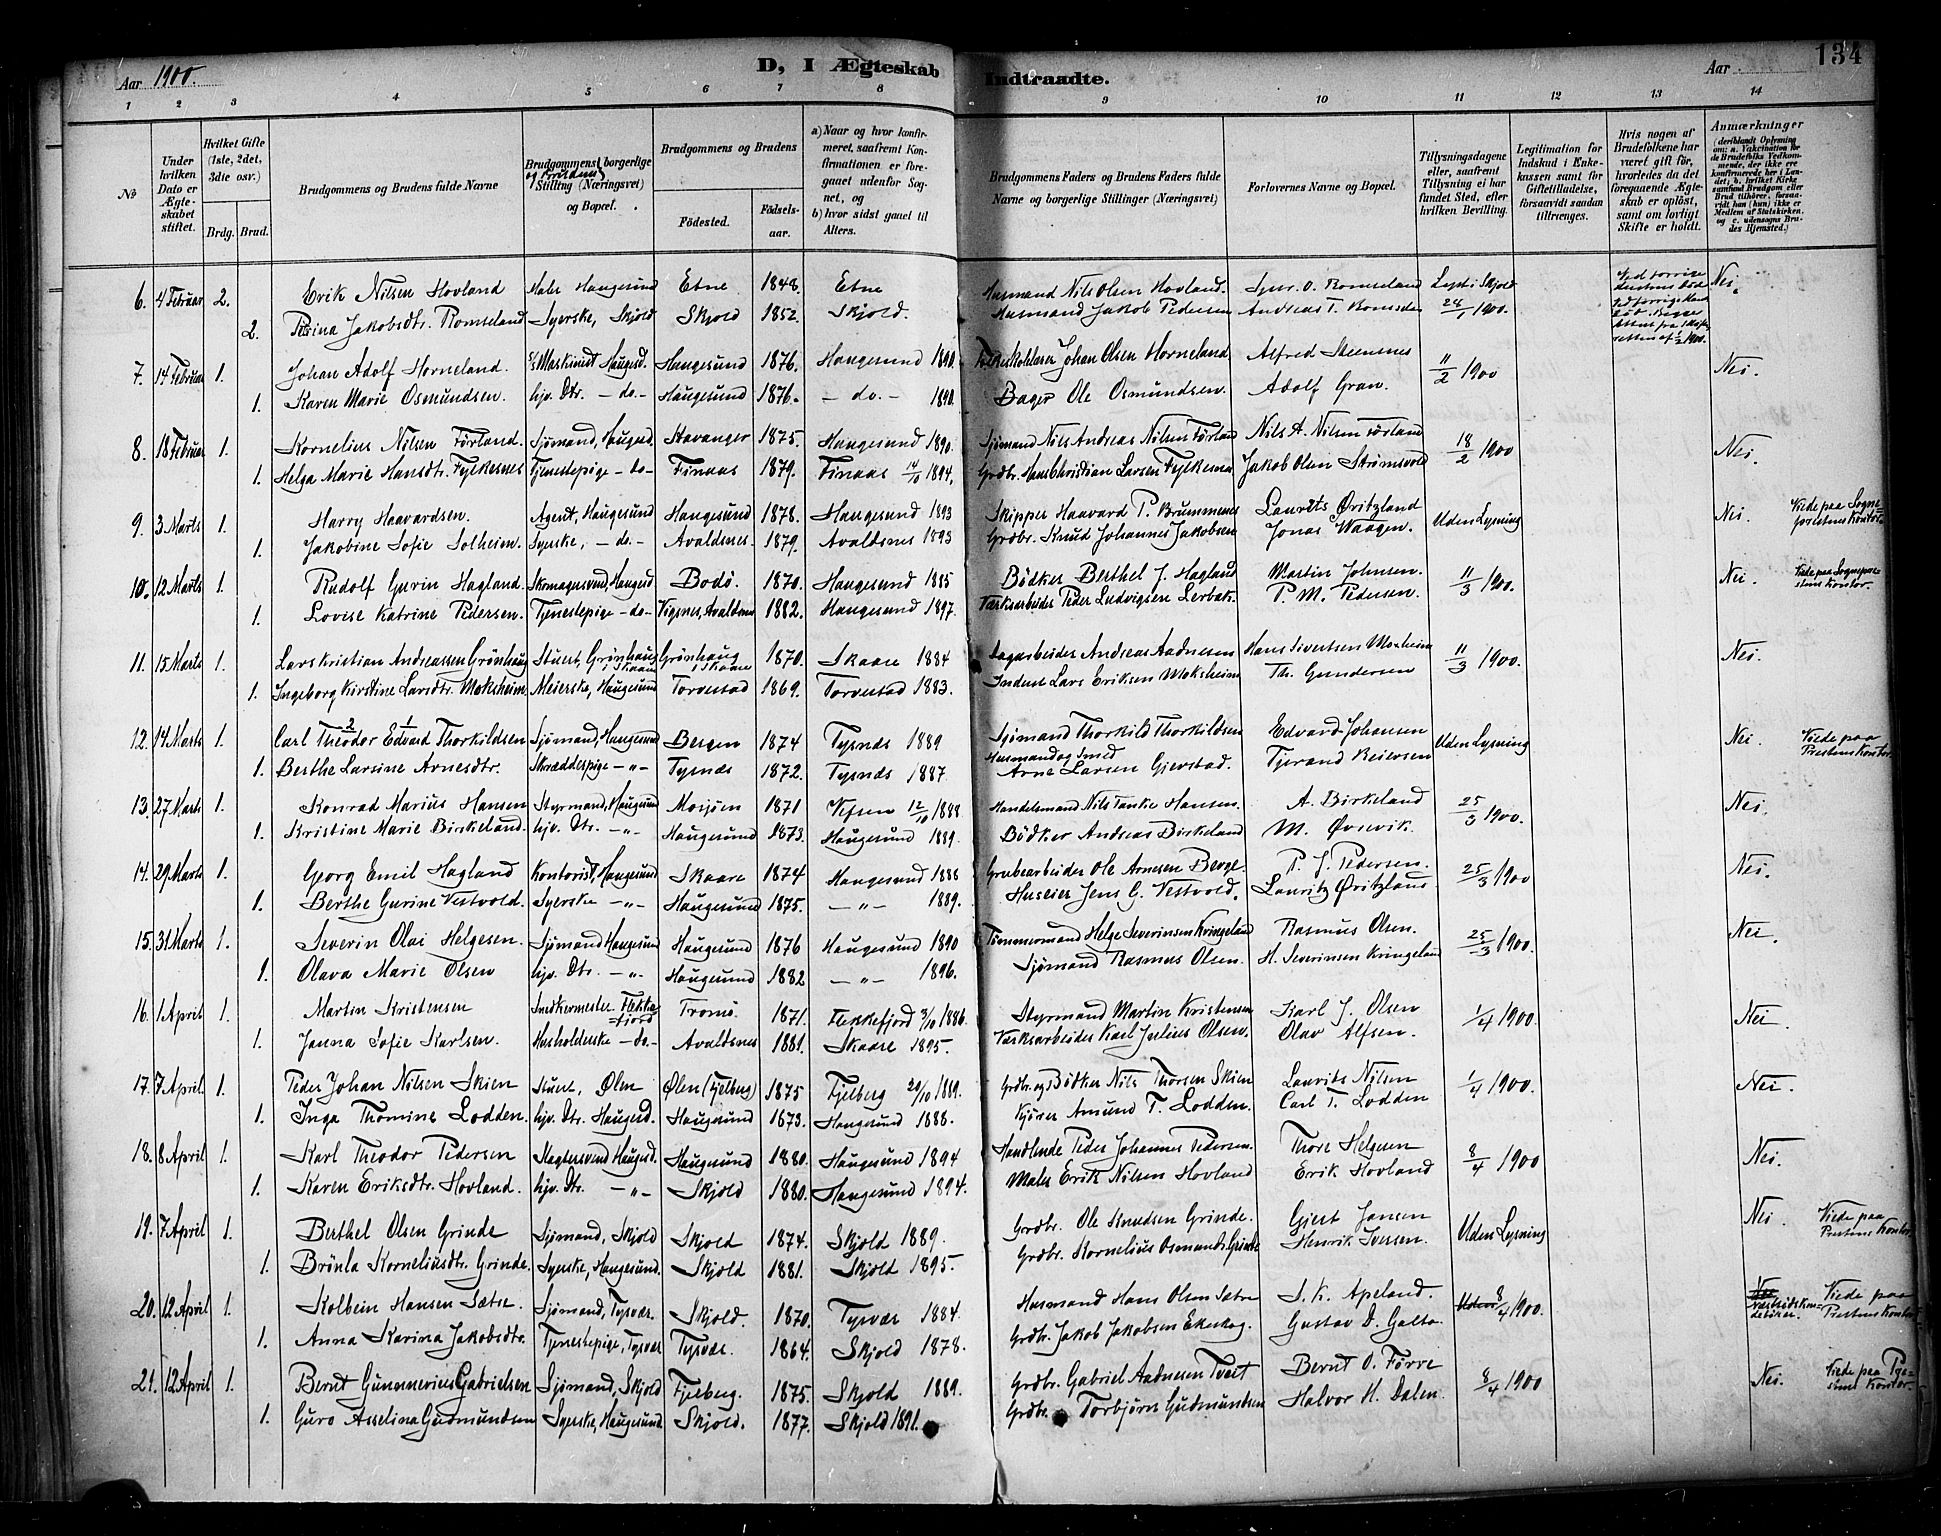 Aar 1900. D, I Ægteskab Indtraadte. Aar 134
1 2 3 4 5 6 7 8 9 10 11 12 13 14
No
Under hvilken Dato er Ægteskabet stiftet.
Hvilket Gifte (1ste, 2det, 3die osv.)
Brdg. Brud.
Brudgommens og Brudens fulde Navne
Brudgommens og Brudens borgerlige Stilling (Næringsvei) og Bopæl.
Brudgommens og Brudens
Fødested. Fødselsaar.
a) Naar og hvor konfirmeret, saafremt Konfirmationen er foregaaet udenfor Sognet, og
b) hvor sidst gaaet til Alters.
Brudgommens Faders og Brudens Faders fulde Navne og borgerlige Stillinger (Næringsvei)
Forlovernes Navne og Bopæl.
Tillysningsdagene eller, saafremt Tillysning ei har fundet Sted, efter hvilken Bevilling.
Legitimation for Indskud i Enkekassen samt for Giftetilladelse, forsaavidt saadan tiltrænges.
Hvis nogen af Brudefolkene har været gift før, hvorledes da det foregaaende Ægteskab er opløst, samt om lovligt Skifte er holdt.
Anmærkninger
6. 4 Februar 2. Erik Nilsen Hovland Maler Haugesund Etne 1848. Etne Husmand Nils Olsen Hovland. O. Romseland Lyst i Skjold Nei.
2. Romseland Syerske, Skjold Skjold 1852. Skjold. Husmand Jakob Pedersen Andreas T. 24/1 1900.
7. 14 Februar 1. Johan Adolf Horneland. Maskinist Haugesd. Haugesund 1876. Haugesund 1890. Johan Olsen Horneland Alfred Steensnes 11/2 1900 Nei.
1. Karen Marie Osmundsen. hjv. Dtr. - do - Haugesund 1876. - do. - 1890. Bager Ole Osmundsen. Adolf Gran.
8. 18 Februar 1. Kornelius Nilsen Førland. Sjømand, Haugesd. Stavanger 1875. Haugesund 1890. Sjømand Nils Andreas Nilsen Førland Nils A. Nilsen Førland 18/2 1900 Nei.
1. Helga Marie Hansdtr. Fylkesnes Tjenestepige - do - Finaas 1879. Finaas 14/10 1894. Grdbr. Hans Christian Larsen Jakob Olsen Strømsvold
9. 3 Marts 1. Harry Haavardsen. Agent, Haugesund Haugesund 1878. Haugesund 1893 Skipper Haavard P. Brummenes Laurits Øritzland Uden Lysning Nei. Viede paa Sogneprestens Kontor.
1. Jakobine Sofie Solheim. Syerske, - do - Avaldsnes. 1879. Avaldsnes 1893 Grdbr. Knud Johannes Jakobsen Jonas Waagen.
10. 12 Marts 1. Rudolf Gurin Hagland. Skomagersvend, Haugesd Bodø. 1870. Haugesund 1885 Bødker Berthel J. Hagland Martin Johnsen. 11/3 1900. Nei Viede paa Sogneprestens Kontor.
1. Lovise Katrine Pedersen. Tjenestepige - do - Vigsnes, Avaldsnes 1882. Haugesund 1897. Værksarbeider Peder Ludvigsen Lerbak. P. M. Pedersen.
11. 15 Marts 1. Lars Kristian Andreassen Grönhaug Stuert, Grönhaug Skaare Grönhaug Skaare 1870. Skaare 1884 Andreas Aadnesen Hans Sivertsen Moxheim 11/3 1900. Nei.
1. Ingeborg Kirstine Larsdtr. Moksheim Meierske, Haugesund Torvestad 1869. Torvestad 1883. Inderst Lars Eriksen Moksheim Th. Gundersen
12. 14 Marts 1. Carl Theodor 2 Edvard 1 Thorkildsen Sjømand, Haugesund Bergen 1874 Tysnæs 1889 Sjømand Thorkild Thorkildsen Edvard Johansen Uden Lysning Nei. Viede paa Prestens Kontor.
1. Berthe Larsine Arnesdtr. Skræddespige - „ - Tysnæs 1872. Tysnæs 1887. Husmand og Smed Arne Larsen Gjerstad. Tjerand Reiersen
13. 27 Marts 1. Konrad Marius Hansen Styrmand, Haugesund Mosjøen 1871 Vefsen 12/10 1888 Handelsmand Nils Tanke Hansen. A. Birkeland 25/3 1900. Nei.
1. Kristine Marie Birkeland. hjv. Dtr. - „ - Haugesund 1873. Haugesund 1889. Bödker Andreas Birkeland M. Øvrevik.
14. 29 Marts 1. Georg Emil Hagland Kontorist, Haugesund Skaare 1874 Haugesund 1888 Grubearbeider Ole Arnesen Berge P. J. Pedersen. 25/3 1900 Nei.
1. Berthe Gurine Vestvold. Syerske - „ - Haugesund 1875. - „ - 1889. Huseier Jens G. Vestvold. Lauritz Øritzland
15. 31 Marts 1. Severin Olai Helgesen. Sjømand Haugesund Haugesund 1876 Haugesund 1890 Tømmermand Helge Severinsen Kringeland Rasmus Olsen. 25/3 1900. Nei.
1. Olava Marie Olsen hjv. Dtr. - „ - Haugesund 1882 - „ - 1896. Sjømand Rasmus Olsen. H. Severinsen Kringeland
16. 1 April 1. Martin Kristensen Snedkermester Flekkefjord Tromsø. 1871. Flekkefjord 3/10 1886. Styrmand Martin Kristensen Karl J. Olsen 1/4 1900. Nei.
1. Janna Sofie Karlsen. Husholderske - do - Avaldsnes 1881. Skaare 1895. Værksarbeider Karl Julius Olsen. Olav Alfsen.
17. 7 April. 1. Peder Johan Nilsen Skien Stuert, Ølen Ølen (Fjelberg) 1875 Fjelberg 20/10 1889. Grdbr. og Bødker Nils Thorsen Skien Laurits Nilsen 1/4 1900. Nei.
1. Inga Thomine Lodden. hjv. Dtr. Haugesd. Haugesund 1873. Haugesund 1888. Kjører Amund T. Lodden. Carl T. Lodden
18. 8 April 1. Karl Theodor Pedersen Slagtersvend Haugesd. Haugesund 1880. Haugesund 1894 Handlende Peder Johannes Pedersen. Thore Helgesen 8/4 1900 Nei.
1. Karen Eriksdtr. Hovland. hjv. Dtr. - „ - Skjold 1880. Haugesund 1894. Maler Erik Nilsen Hovland Erik Hovland
19. 7 April 1. Berthel Olsen Grinde Sjømand, Skjold Skjold 1874. Skjold 1889. Grdbr. Ole Knudsen Grinde. Gjert Jansen Uden Lysning Nei. Viede paa Prestens Kontor.
1. Brönla Korneliusdtr. Grinde. Syerske, Haugesund. Skjold 1881. Skjold 1895. Grdbr. Kornelius Osmunds. Grinde Henrik Iversen.
20. 12 April 1. Kolbein Hansen Sætre. Sjømand, Tysvær. Skjold. 1870. Tysvær 1884. Husmand Hans Olsen Sætre S. K. Apeland. 8/4 1900. Viede paa Prestens Kontor.
1. Anna Karina Jakobsdtr. Tjenestepige, Tysvær Tysvær. 1864. Skjold 1878. Grdbr. Jakob Jakobsen Ekeskog. Gustav D. Galta.
21. 12 April 1. Bernt Gunnerius Gabrielsen Sjømand, Skjold Fjelberg. 1875. Skjold 1889. Grdbr. Gabriel Aadnesen Tveit Bernt O. Førre 8/4 1900 Nei.
1. Guro Asselina Gudmundsen Syerske, Haugesund. Skjold. 1877. Skjold 1891. Grdbr. Torbjørn Gudmundsen Halvor H. Dalen.